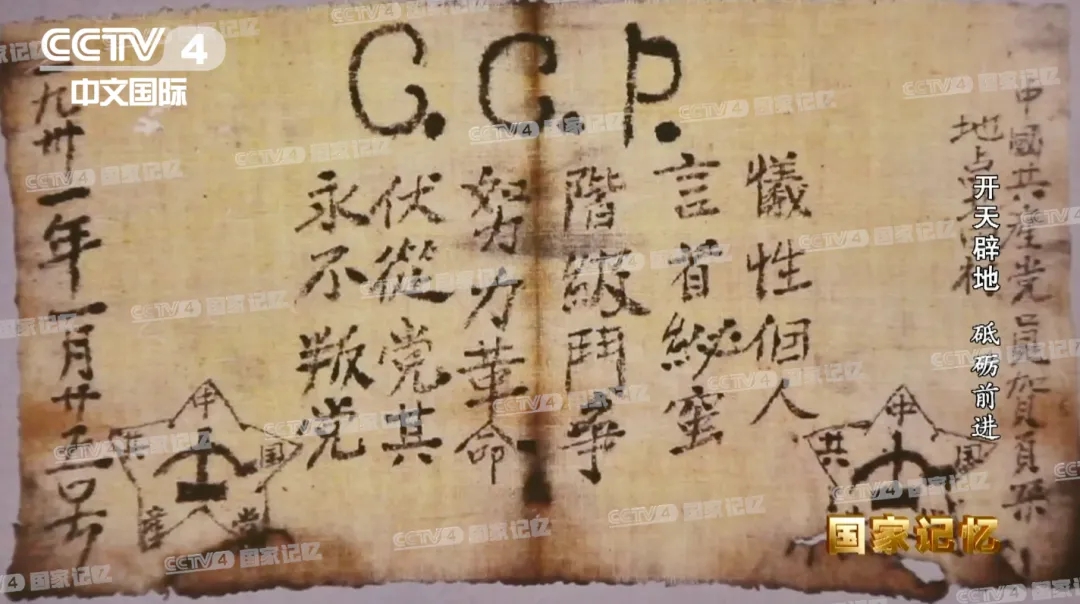 CCTV 4
中文国际
C.C.P.
中國共產党員賀頁朵
地点
犧性個人
言首秘蜜
階級鬥争
努力革命
伏從党其
永不叛党
一九卅一年一月廿五号
中国共產党
中国共
开天辟地 砥砺前进
国家记忆
CCTV4 国家记忆